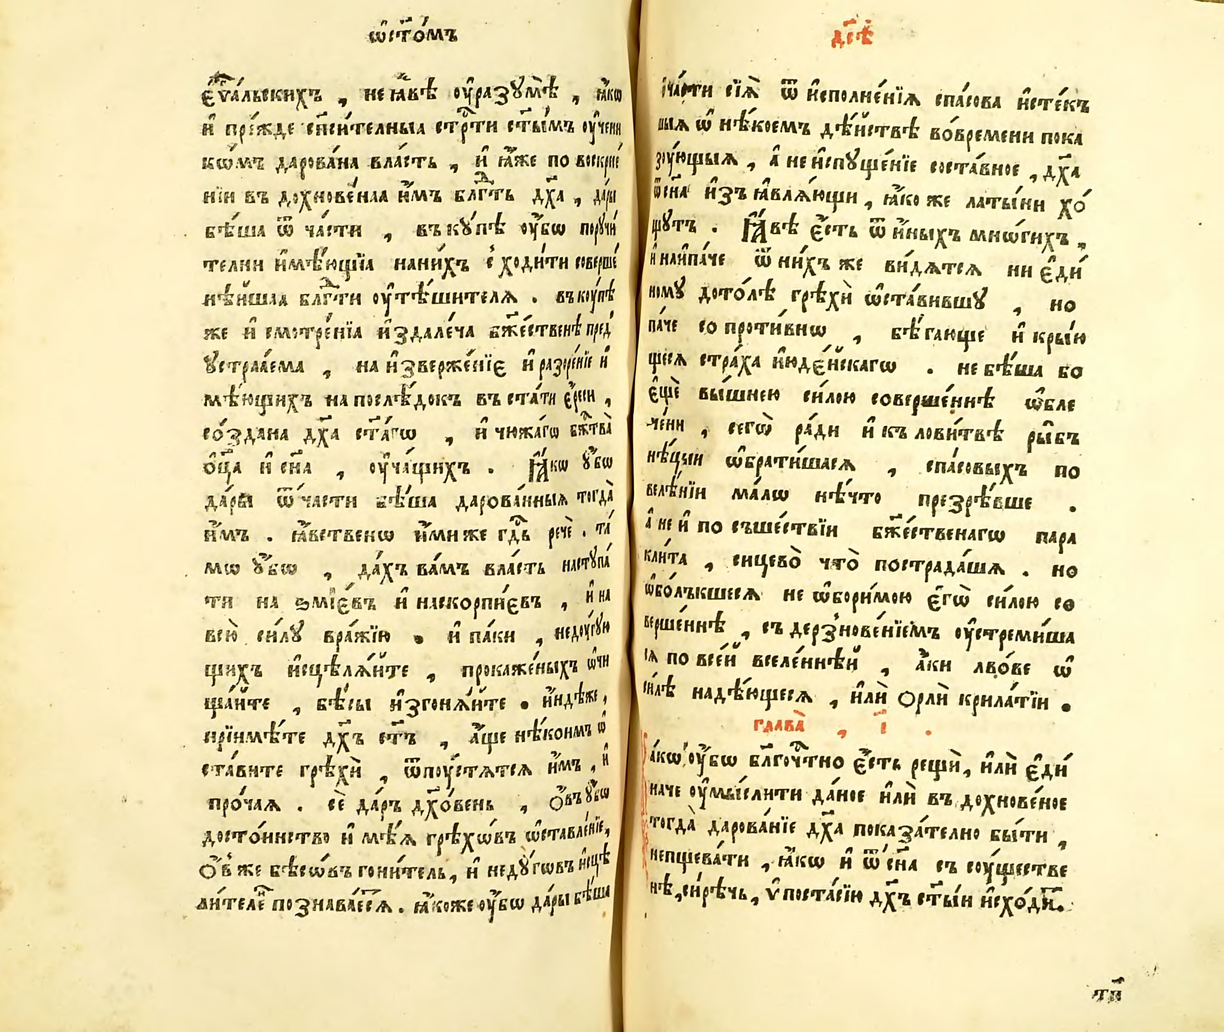 ѡ҆ст҃омъ
є҆ѵⷢ҇альскихъ , не ꙗ҆вѣ ᲂу҆разꙋмѣ̀ , ꙗ҆́кѡ
и҆ пре́жде сп҃си́телныѧ стрⷭ҇ти ст҃ы́мъ ᲂу҆чени
кѡ́мъ дарова́на вла́сть , и҆ ꙗ҆́же по воскрⷭ҇е
нїи въ дохнове́наѧ и҆̀мъ блгⷣть дх҃а , да́ры
бѣ́ша ѿ ча́сти , въкꙋ́пѣ ᲂу҆́бѡ порꙋчи́
телни и҆мѣ́ющїѧ нани́хъ сходи́ти соверше́
нѣ́йшаѧ блгⷣти ᲂу҆тѣ́шителѧ . въкꙋ́пѣ
же и҆ смотре́нїѧ и҆здале́ча бж҃е́ственѣ пред̾
ꙋстраѧ́ема , на и҆зверже́нїе и҆ разоре́нїе и҆
мѣ́ющихъ напослѣ́докъ въста́ти є҆́реси ,
со́здана дх҃а ст҃а́гѡ , и҆ чюжа́гѡ бж҃тва̀
ѻ҆ц҃а̀ и҆ сн҃а , ᲂу҆ча́щихъ . Ꙗ҆́кѡ ᲂу҆́бѡ
да́ры ѿ ча́сти бѣ́ша дарова́нныѧ тогда̀
и҆̀мъ . ꙗ҆́вственѡ и҆́миже гдⷭ҇ь речѐ . та́
мѡ ᲂу҆́бѡ , да́хъ ва́мъ вла́сть настꙋпа́
ти на ѕмїе́въ и҆ наскорпїе́въ , и҆ на
всю̀ си́лꙋ вра́жїю . и҆ па́ки , недꙋ́гꙋю
щихъ и҆сцѣлѧ́йте , прокаже́ныхъ ѡ҆чи
ща́йте , бѣ́сы и҆згонѧ́йте . и҆ндѣ́же ,
прїими́те дх҃ъ ст҃ъ , а҆́ще нѣ́коимъ ѡ҆
ста́вите грѣхѝ , ѿпꙋ́стѧтсѧ и҆̀мъ , и҆
про́чаѧ . сѐ да́ръ дх҃о́венъ , ѻ҆́въ ᲂу҆́бѡ
досто́инство и҆мѣ́ѧ грѣхѡ́въ ѡ҆ставле́нїе ,
ѻ҆́въ же бѣсѡ́въ гони́тель , и҆ недꙋ́гѡвъ и҆сцѣ
ли́телⷣ познава́етсѧ . ꙗ҆́коже ᲂу҆́бѡ да́ры бѣ́ша
дс҃ѣ
ѿча́сти сїѧ̀ ѿ и҆сполне́нїѧ спа́сова и҆сте́къ
шыѧ ѡ҆ нѣ́коемъ дѣ́йствѣ во́времени пока
зꙋ́ющыѧ , а҆ не и҆спꙋще́нїе соста́вное , дх҃а
ѿ сн҃а и҆зъꙗ҆влѧ́ющи , ꙗ҆́коже латы́ни хо́
щꙋтъ . Ꙗ҆́вѣ є҆́сть ѿ и҆́ныхъ мно́гихъ ,
и҆ наи́паче ѿ ни́хъ же ви́дѧтсѧ ни є҆ди́
номꙋ дото́лѣ грѣхѝ ѡ҆ста́вившꙋ , но
па́че сопроти́внѡ , бѣ́гающе и҆ кры́ю
щесѧ стра́ха і҆юде́йскагѡ . не бѣ́ша бо
є҆щѐ вы́шнею си́лою соверше́ннѣ ѡ҆бле
че́ни , сегѡ̀ ра́ди и҆ къ лови́твѣ ры́бъ
нѣ́цыи ѡ҆брати́шасѧ , спа́совыхъ по
велѣ́нїи ма́лѡ нѣ́что презрѣ́вше .
а҆ не и҆ по съше́ствїи бж҃е́ственагѡ пара
кли́та , сицево̀ что̀ пострада́шѧ . но
ѡ҆бо́лъкшесѧ не ѡ҆бори́мою є҆гѡ̀ си́лою со
верше́ннѣ , съ дерз̾нове́нїемъ ᲂу҆стреми́ша
сѧ по все́й вселе́ннѣй , а҆́ки льво́ве ѡ҆
си́лѣ надѣ́ющесѧ , и҆лѝ ѻ҆рлѝ крила́тїи .
глава̀ , і҃ .
Ꙗ҆́кѡ ᲂу҆́бѡ блгⷭ҇чтно є҆́сть рещѝ , и҆лѝ є҆ди́
наче ᲂу҆мы́слити да́ное и҆лѝ въ дохнове́ное
тогда̀ дарова́нїе дх҃а показа́телно бы́ти ,
непщева́ти , ꙗ҆́кѡ и҆ ѿ сн҃а съ сꙋ́ществе
нѣ , си́рѣчь , ѵ҆поста́сїю дх҃ъ ст҃ы́и и҆схо́дⷮи .
ти